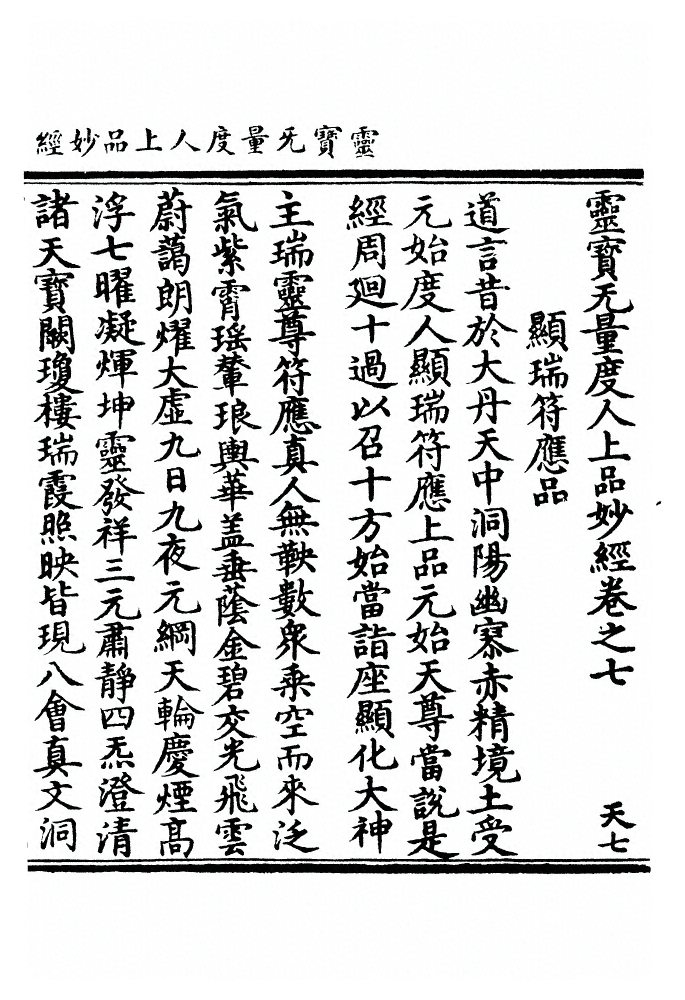 靈寶无量度人上品妙經
靈寶无量度人上品妙經卷之七 天七
顯瑞符應品
道言昔於大丹天中洞陽幽寥赤精境土受
元始度人顯瑞符應上品元始天尊當說是
經周廻十過以召十方始當詣座顯化大神
主瑞靈尊符應真人無鞅數眾乘空而來泛
氣紫霄瑶輦琅輿華盖垂蔭金碧交光飛雲
蔚藹朗燿大虛九日九夜元綱天輪慶煙高
浮七曜凝煇坤靈發祥三元肅靜四炁澄清
諸天寶闕瓊樓瑞霞照映皆現八會真文洞